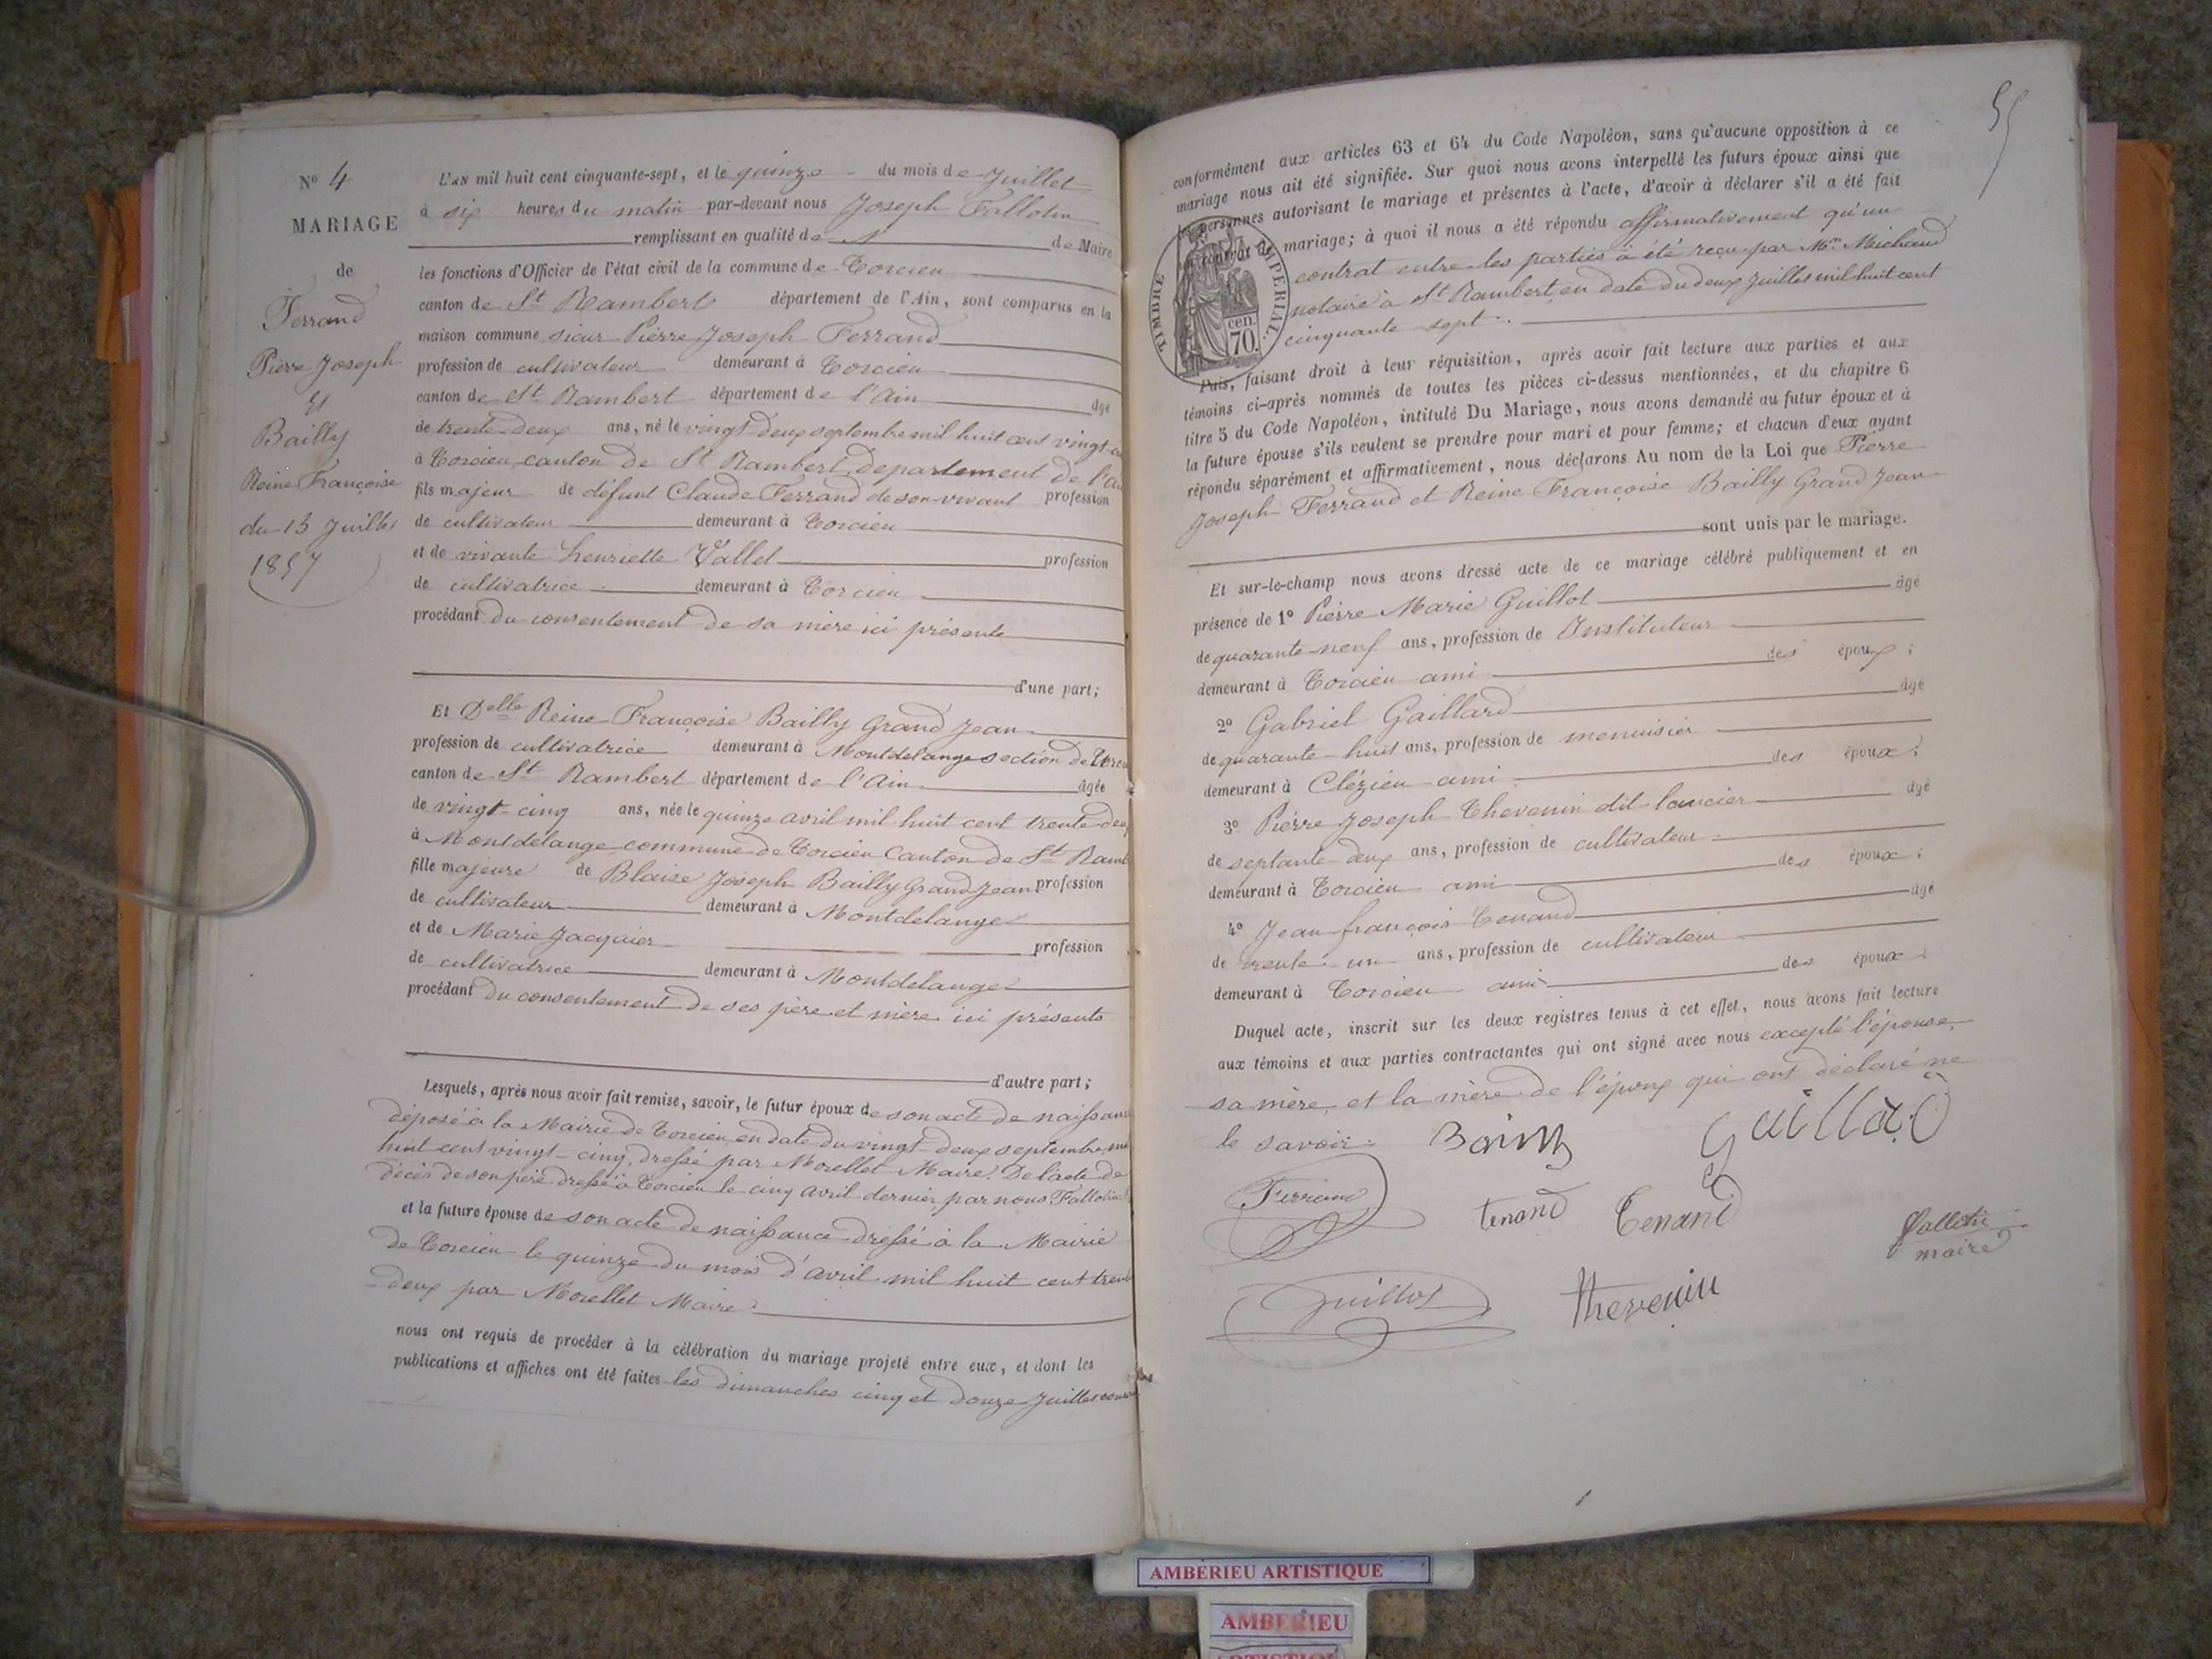 Nº 4
MARIAGE
de
Ferrand
Pierre Joseph
et
Bailly
Reine Françoise
du 15 Juillet
1857
L'AN mil huit cent cinquante-sept, et le quinze du mois de Juillet
à six heures du matin par-devant nous Joseph Fallotin
remplissant en qualité de de Maire
les fonctions d'Officier de l'état civil de la commune de Torcieu
canton de St Rambert département de l'Ain, sont comparus en la
maison commune sieur Pierre Joseph Ferrand
profession de cultivateur demeurant à Torcieu
canton de St Rambert département de l'Ain âgé
de trente-deux ans, né le vingt-deux septembre mil huit cent vingt-
à Torcieu, canton de St Rambert, departement de l'
fils majeur de défunt Claude Ferrand de son vivant profession
de cultivateur demeurant à Torcieu
et de vivante henriette Vallet profession
de cultivatrice demeurant à Torcieu
procédant du consentement de sa mère ici présente
d'une part;
Et Delle Reine Françoise Bailly Grand Jean
profession de cultivatrice demeurant à Montdelange section de
canton de St Rambert département de l'Ain âgée
de vingt-cinq ans, née le quinze avril mil huit cent trente
à Montdelange commune de Torcieu Canton de St
fille majeure de Blaise Joseph Bailly Grand Jean profession
de cultivateur demeurant à Montdelange
et de Marie Jacquier profession
de cultivatrice demeurant à Montdelange
procédant du consentement de ses père et mère ici présents
d'autre part;
Lesquels, après nous avoir fait remise, savoir, le futur époux de son acte de
déposé à la Mairie de Torcieu, en date du vingt-deux septembre
huit cent vingt-cinq, dressé par Morellet Maire. De l'acte de
décès de son père dressé à Torcieu le cinq avril dernier, par nous Fallotin
et la future épouse de son acte de naissance dressé à la Mairie
de Torcieu le quinze du mois d'avril mil huit cent
-deux par Morellet Maire.
nous ont requis de procéder à la célébration du mariage projeté entre eux, et dont les
publications et affiches ont été faites les dimanches cinq et douze Juillet
55
conformément aux articles 63 et 64 du Code Napoléon, sans qu'aucune opposition à ce
mariage nous ait été signifiée. Sur quoi nous avons interpellé les futurs époux ainsi que
les personnes autorisant le mariage et présentes à l'acte, d'avoir à déclarer s'il a été fait
un contrat de mariage; à quoi il nous a été répondu affirmativement qu'un
contrat entre les parties a été reçu par Me Michaud
notaire à St Rambert, en date du deux juillet mil huit cent
cinquante sept.
TIMBRE IMPERIAL.
cen
70.
Puis, faisant droit à leur réquisition, après avoir fait lecture aux parties et aux
témoins ci-après nommés de toutes les pièces ci-dessus mentionnées, et du chapitre 6
titre 5 du Code Napoléon, intitulé Du Mariage, nous avons demandé au futur époux et à
la future épouse s'ils veulent se prendre pour mari et pour femme; et chacun d'eux ayant
répondu séparément et affirmativement, nous déclarons Au nom de la Loi que Pierre
Joseph Ferrand et Reine Françoise Bailly Grand Jean
sont unis par le mariage.
Et sur-le-champ nous avons dressé acte de ce mariage célébré publiquement et en
présence de 1º Pierre Marie Guillot âgé
de quarante-neuf ans, profession de Instituteur
demeurant à Torcieu ami des époux;
2º Gabriel Gaillard âgé
de quarante-huit ans, profession de menuisier
demeurant à Clézieu ami des époux;
3º Pierre Joseph Thevenin dit lancier âgé
de septante deux ans, profession de cultivateur
demeurant à Torcieu ami des époux;
4º Jean françois Tenand âgé
de trente-un ans, profession de cultivateur
demeurant à Torcieu ami des époux.
Duquel acte, inscrit sur les deux registres tenus à cet effet, nous avons fait lecture
aux témoins et aux parties contractantes qui ont signé avec nous excepté l'épouse,
sa mère, et la mère de l'époux qui ont déclaré ne
le savoir.
Gaillard
Ferrand
tenand
Tenand
Fallotin
maire
Guillot
thevenin
AMBÉRIEU ARTISTIQUE
AMBERIEU
ARTISTIQUE